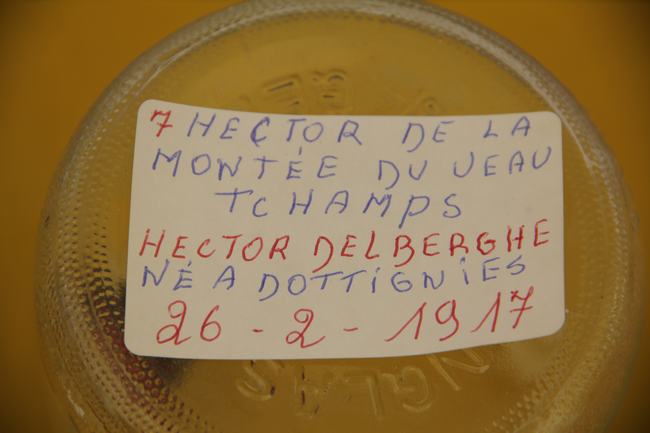 7 HECTOR DE LA
MONTÉE DU VEAU
TCHAMPS
HECTOR DELBERGHE
NÉ A DOTTIGNIES
26-2-1917